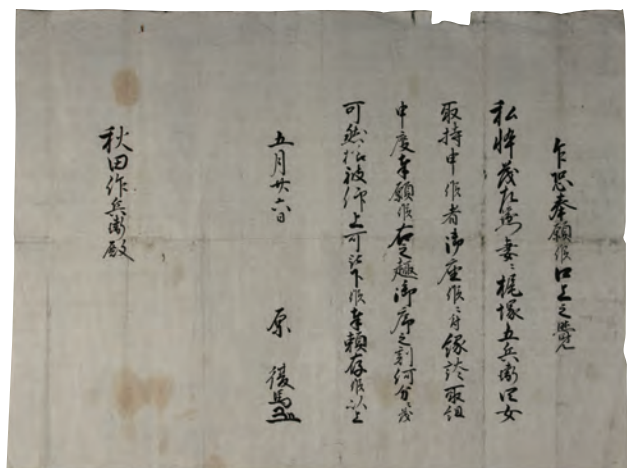 乍恐奉願候口上之覚
私悴茂左衛門妻ニ梶塚五兵衛四女
取持申候者御座候ニ付縁談取組
申度奉願候右之趣御序之刻何分ニ茂
可然様被仰上可被下候奉頼存候以上
五月廿六日
原
秋田作兵衛殿